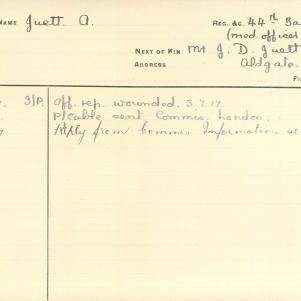 NAME Juett. A. REG. &C. 44th Ba
(med. officer
NEXT OF KIN Mr J. D. Juett
ADDRESS Aldgate.
FI
9/P. Off. rep. wounded. 3.7.17.
P/cable sent Commis. London.
Reply from Commis. Information se